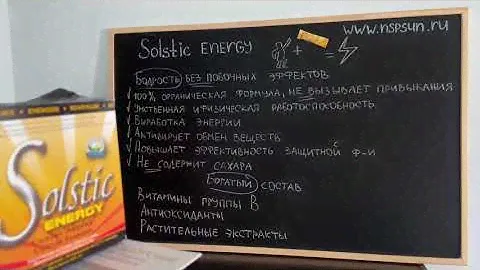 www.nspsun.ru
Solstic ENERGY + =
Бодрость без побочных эффектов
100% органическая формула, не вызывает привыкания
Умственная и физическая работоспособность
Выработка энергии
Активирует обмен веществ
Повышает эффективность защитной с ф-и
Не содержит сахара
Богатый состав
Витамины группы В
Антиоксиданты
Растительные экстракты
Solstic
ENERGY